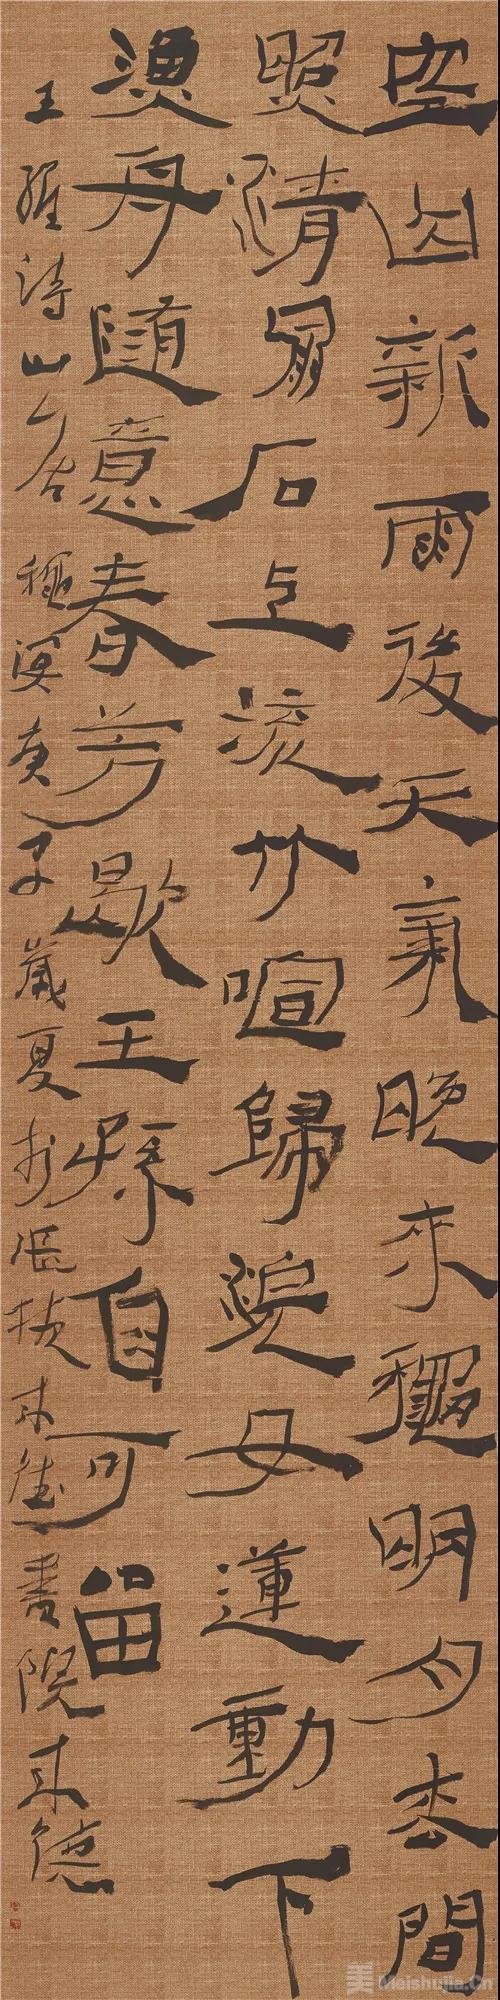 空山新雨後天氣晚来穐明月松間
照清泉石上流竹喧歸浣女蓮動下
漁舟随意春芳歇王孫自可留
王維詩山居穐溟庚子歲夏於書院
美 Meishujia.Cn